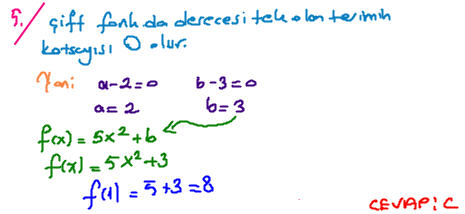 5./ çift fonk da derecesi tek olan terimin
katsayısı 0 olur.
Yani a-2=0 b-3=0
a=2 b=3
f(x) = 5x²+b
f(x) = 5x²+3
f(1) = 5+3=8
CEVAP: C